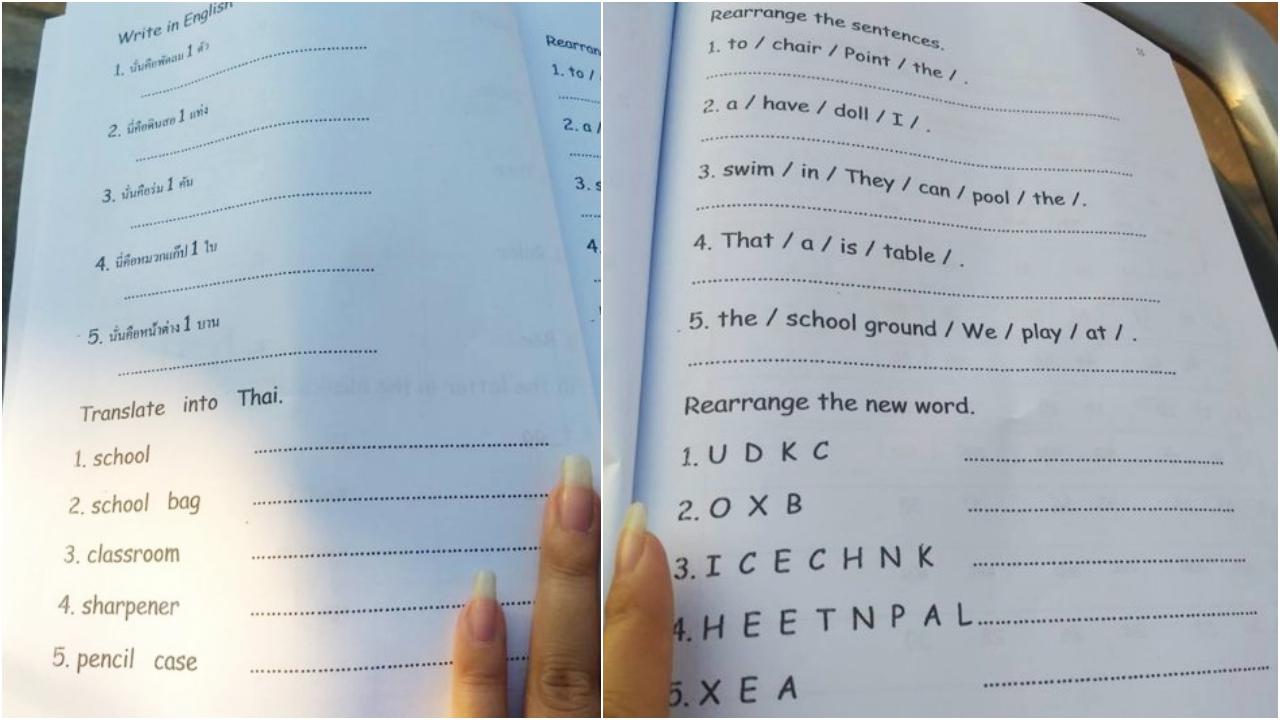 Write in English
1. นั่นคือพัดลม 1 ตัว
2. นี่คือดินสอ 1 แท่ง
3. นั่นคือร่ม 1 คัน
4. นี่คือหมวกแก๊ป 1 ใบ
5. นั่นคือหน้าต่าง 1 บาน
Translate into Thai.
1. school
2. school bag
3. classroom
4. sharpener
5. pencil case
Rearran
1. to /
2. a /
3. s
4.
Rearrange the sentences.
1. to / chair / Point / the / .
2. a / have / doll / I / .
3. swim / in / They / can / pool / the /.
4. That / a / is / table / .
5. the / school ground / We / play / at / .
Rearrange the new word.
1. U D K C
2. O X B
3. I C E C H N K
4. H E E T N P A L
5. X E A